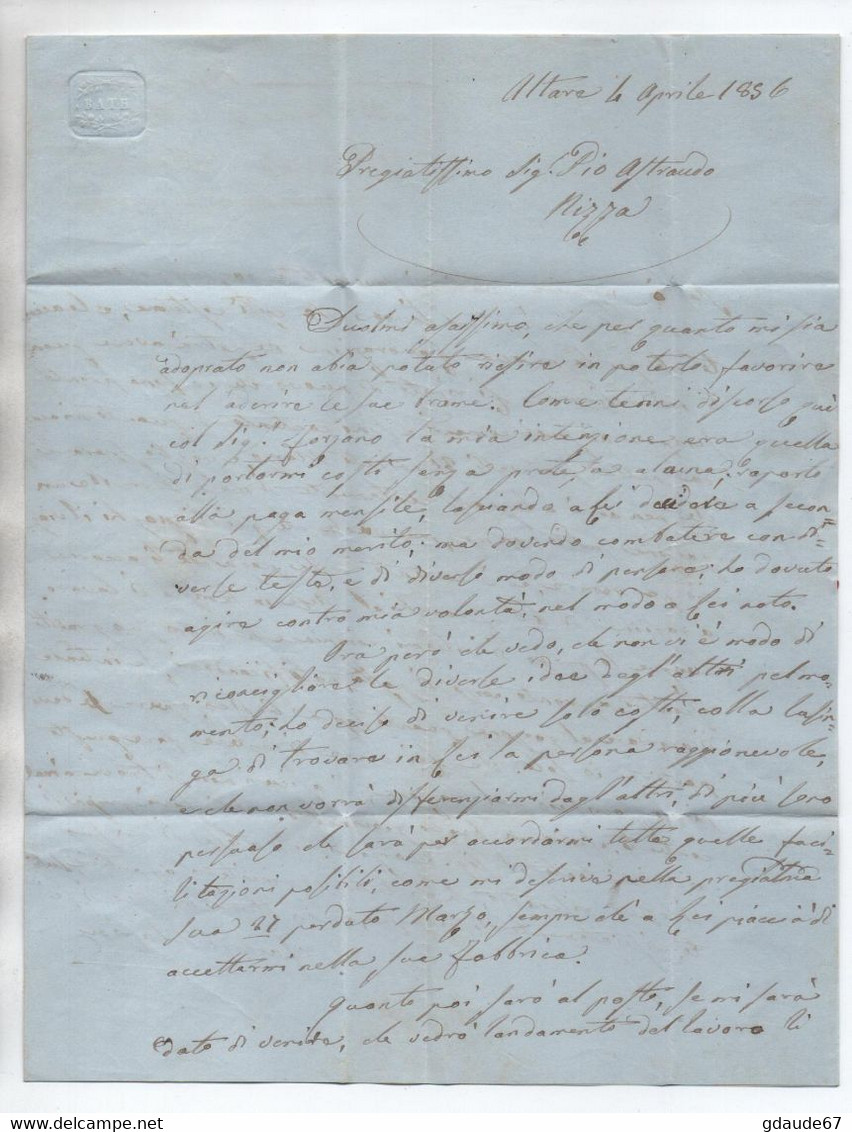 BATH
Altare 4 Aprile 1856
Pregiatissimo Sig. Pio Astraudo
Nizza
Duolmi assaissimo, che per quanto mi sia
adoprato non abia potuto riesire in poterlo favorire
nel aderire le sue brame. Come tenni discorso già
col Sig.r Forzano la mia intenzione era quella
di portarmi costì senza pretesa alcuna, raporto
alla paga mensile, lasciando a Lei decidere a secon=
da del mio merito; ma dovendo combatere con di=
verse teste, e di diverso modo di pensare; ho dovuto
agire contro mia volontà, nel modo a Lei noto.
Ora però che vedo, che non vi è modo di
riconcigliare le diverse idee degl'altri pel mo=
mento; ho deciso di venire solo costì, colla lusin=
ga di trovare in Lei la persona raggionevole,
e che non vorrà differenziarmi dagl'altri, di più sono
persuaso che sarà per accordarmi tutte quelle faci=
litazioni possibili, come mi descrive nella pregiatma
sua 27 perduto Marzo, sempre chè a Lei piaccia di
accettarmi nella sua fabbrica.
Quanto poi sarò al posto, se mi sarà
dato di venire, che vedrò landamento del lavoro li
gdaude67